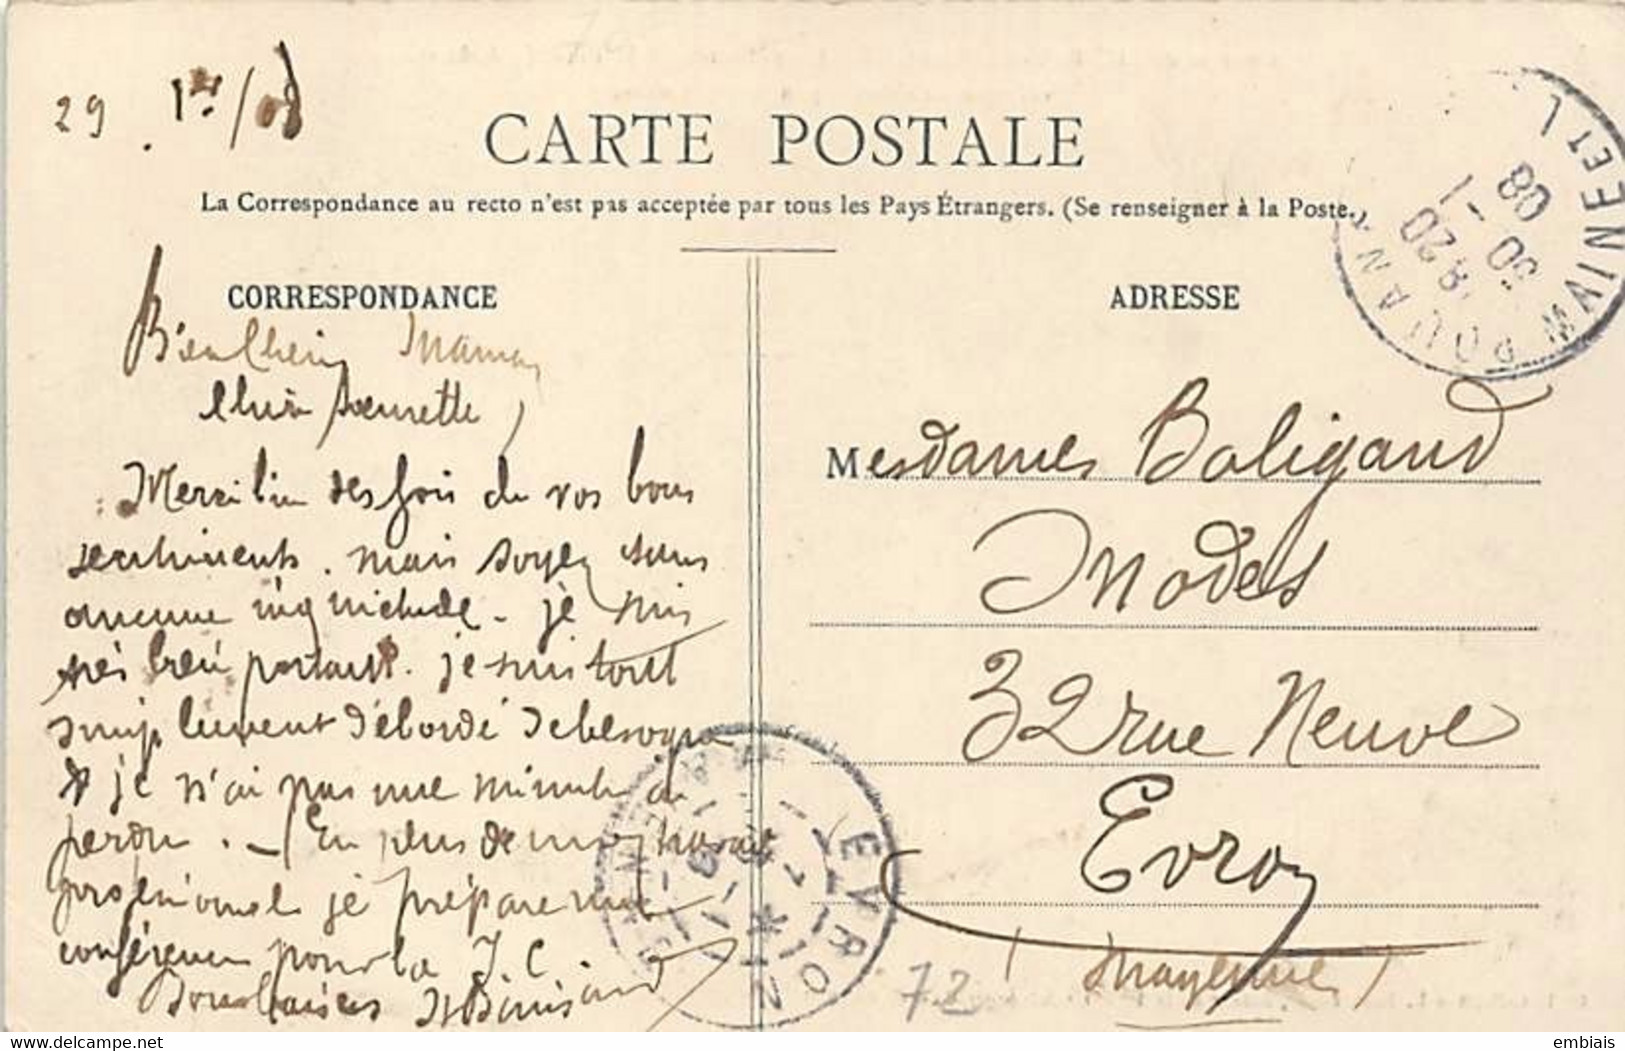 29 . 1er/08
CARTE POSTALE
La Correspondance au recto n'est pas acceptée par tous les Pays Étrangers. (Se renseigner à la Poste.)
CORRESPONDANCE
Bien Chère Maman
chère soeurette,
Merci bien des fois de vos bons
sentiments. mais soyez sans
aucune inquiétude. je suis
très bien portant. je suis tout
simplement débordé de besogne
& je n'ai pas une minute à
perdre. _ (En plus de mon travail
professionnel je prépare une
conférence pour la J. C.
Bons baisers
ADRESSE
Mesdames Baligand
Modes
32 rue Neuve
Evron
(Mayenne)
72
POUANCÉ MAINE ET L
8 20
30 -1
08
EVRON
MAYENNE
embiais